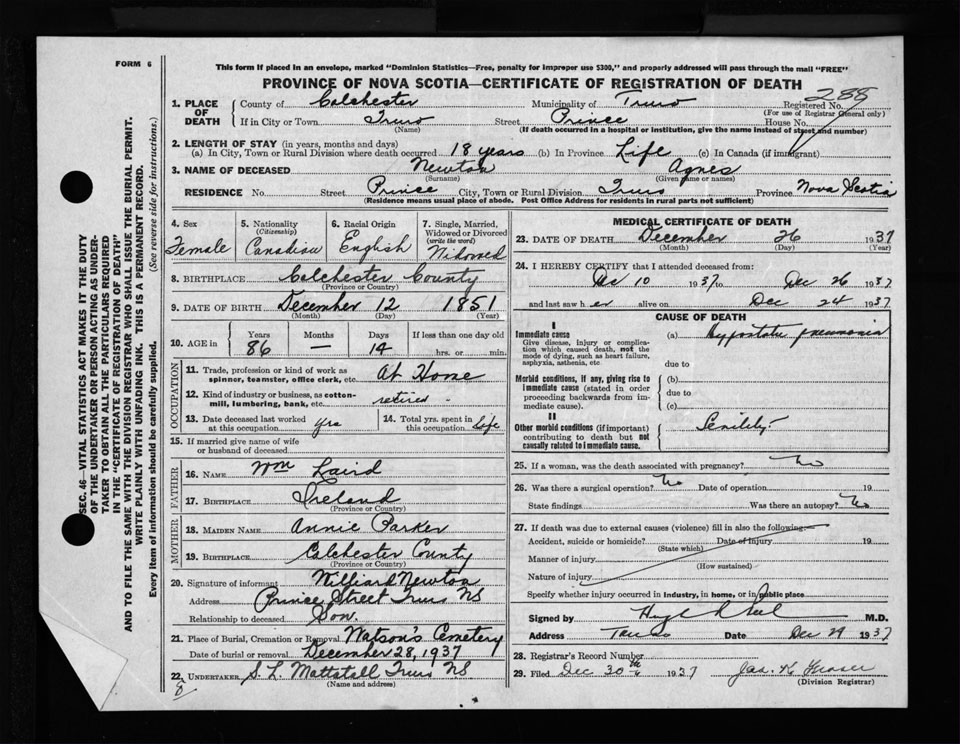 FORM 6
This form if placed in an envelope, marked "Dominion Statistics—Free, penalty for improper use $300," and properly addressed will pass through the mail "FREE"
PROVINCE OF NOVA SCOTIA—CERTIFICATE OF REGISTRATION OF DEATH
1. PLACE OF DEATH County of Colchester Municipality of Truro Registered No. 288
(For use of Registrar General only)
If in City or Town Truro Street Prince House No.
(Name) (If death occurred in a hospital or institution, give the name instead of street and number)
2. LENGTH OF STAY (in years, months and days)
(a) In City, Town or Rural Division where death occurred 18 years (b) In Province Life (c) In Canada (if immigrant)
3. NAME OF DECEASED Newton Agnes
(Surname) (Given name or names)
RESIDENCE No. Street Prince City, Town or Rural Division Truro Province Nova Scotia
(Residence means usual place of abode. Post Office Address for residents in rural parts not sufficient)
4. Sex Female
5. Nationality (Citizenship) Canadian
6. Racial Origin English
7. Single, Married, Widowed or Divorced (write the word) Widowed
8. BIRTHPLACE Colchester County
(Province or Country)
9. DATE OF BIRTH December 12 1851
(Month) (Day) (Year)
10. AGE in Years 86 Months — Days 14 If less than one day old hrs. or min.
OCCUPATION
11. Trade, profession or kind of work as spinner, teamster, office clerk, etc. At Home
12. Kind of industry or business, as cotton-mill, lumbering, bank, etc. retired
13. Date deceased last worked at this occupation yrs
14. Total yrs. spent in this occupation Life
15. If married give name of wife or husband of deceased
FATHER
16. NAME Wm Laird
17. BIRTHPLACE Ireland
(Province or Country)
MOTHER
18. MAIDEN NAME Annie Parker
19. BIRTHPLACE Colchester County
(Province or Country)
20. Signature of informant Williard Newton
Address Prince Street Truro NS
Relationship to deceased Son.
21. Place of Burial, Cremation or Removal Watson's Cemetery
Date of burial or removal December 28, 1937
22. UNDERTAKER S. L. Mattatall Truro NS
(Name and address)
8
MEDICAL CERTIFICATE OF DEATH
23. DATE OF DEATH December 26 1937
(Month) (Day) (Year)
24. I HEREBY CERTIFY that I attended deceased from:
Dec 10 1937 to Dec 26 1937
and last saw h er alive on Dec 24 1937
CAUSE OF DEATH
I
Immediate cause (a) Hypostatic pneumonia
Give disease, injury or complication which caused death, not the mode of dying, such as heart failure, asphyxia, asthenia, etc
due to
Morbid conditions, if any, giving rise to immediate cause (stated in order proceeding backwards from immediate cause).
(b)
due to
(c)
II
Other morbid conditions (if important) contributing to death but not causally related to immediate cause. Senility
25. If a woman, was the death associated with pregnancy? No
26. Was there a surgical operation? No Date of operation 19
State findings Was there an autopsy? No
27. If death was due to external causes (violence) fill in also the following:
Accident, suicide or homicide? Date of injury 19
(State which)
Manner of injury
(How sustained)
Nature of injury
Specify whether injury occurred in industry, in home, or in public place
Signed by M.D.
Address Truro Date Dec 29 1937
28. Registrar's Record Number
29. Filed Dec 30th 1937 Jas. K Fraser
(Division Registrar)
SEC. 46—VITAL STATISTICS ACT MAKES IT THE DUTY
OF THE UNDERTAKER OR PERSON ACTING AS UNDER-
TAKER TO OBTAIN ALL THE PARTICULARS REQUIRED
IN THE "CERTIFICATE OF REGISTRATION OF DEATH"
AND TO FILE THE SAME WITH THE DIVISION REGISTRAR WHO SHALL ISSUE THE BURIAL PERMIT.
WRITE PLAINLY WITH UNFADING INK. THIS IS A PERMANENT RECORD.
Every item of information should be carefully supplied. (See reverse side for instructions.)